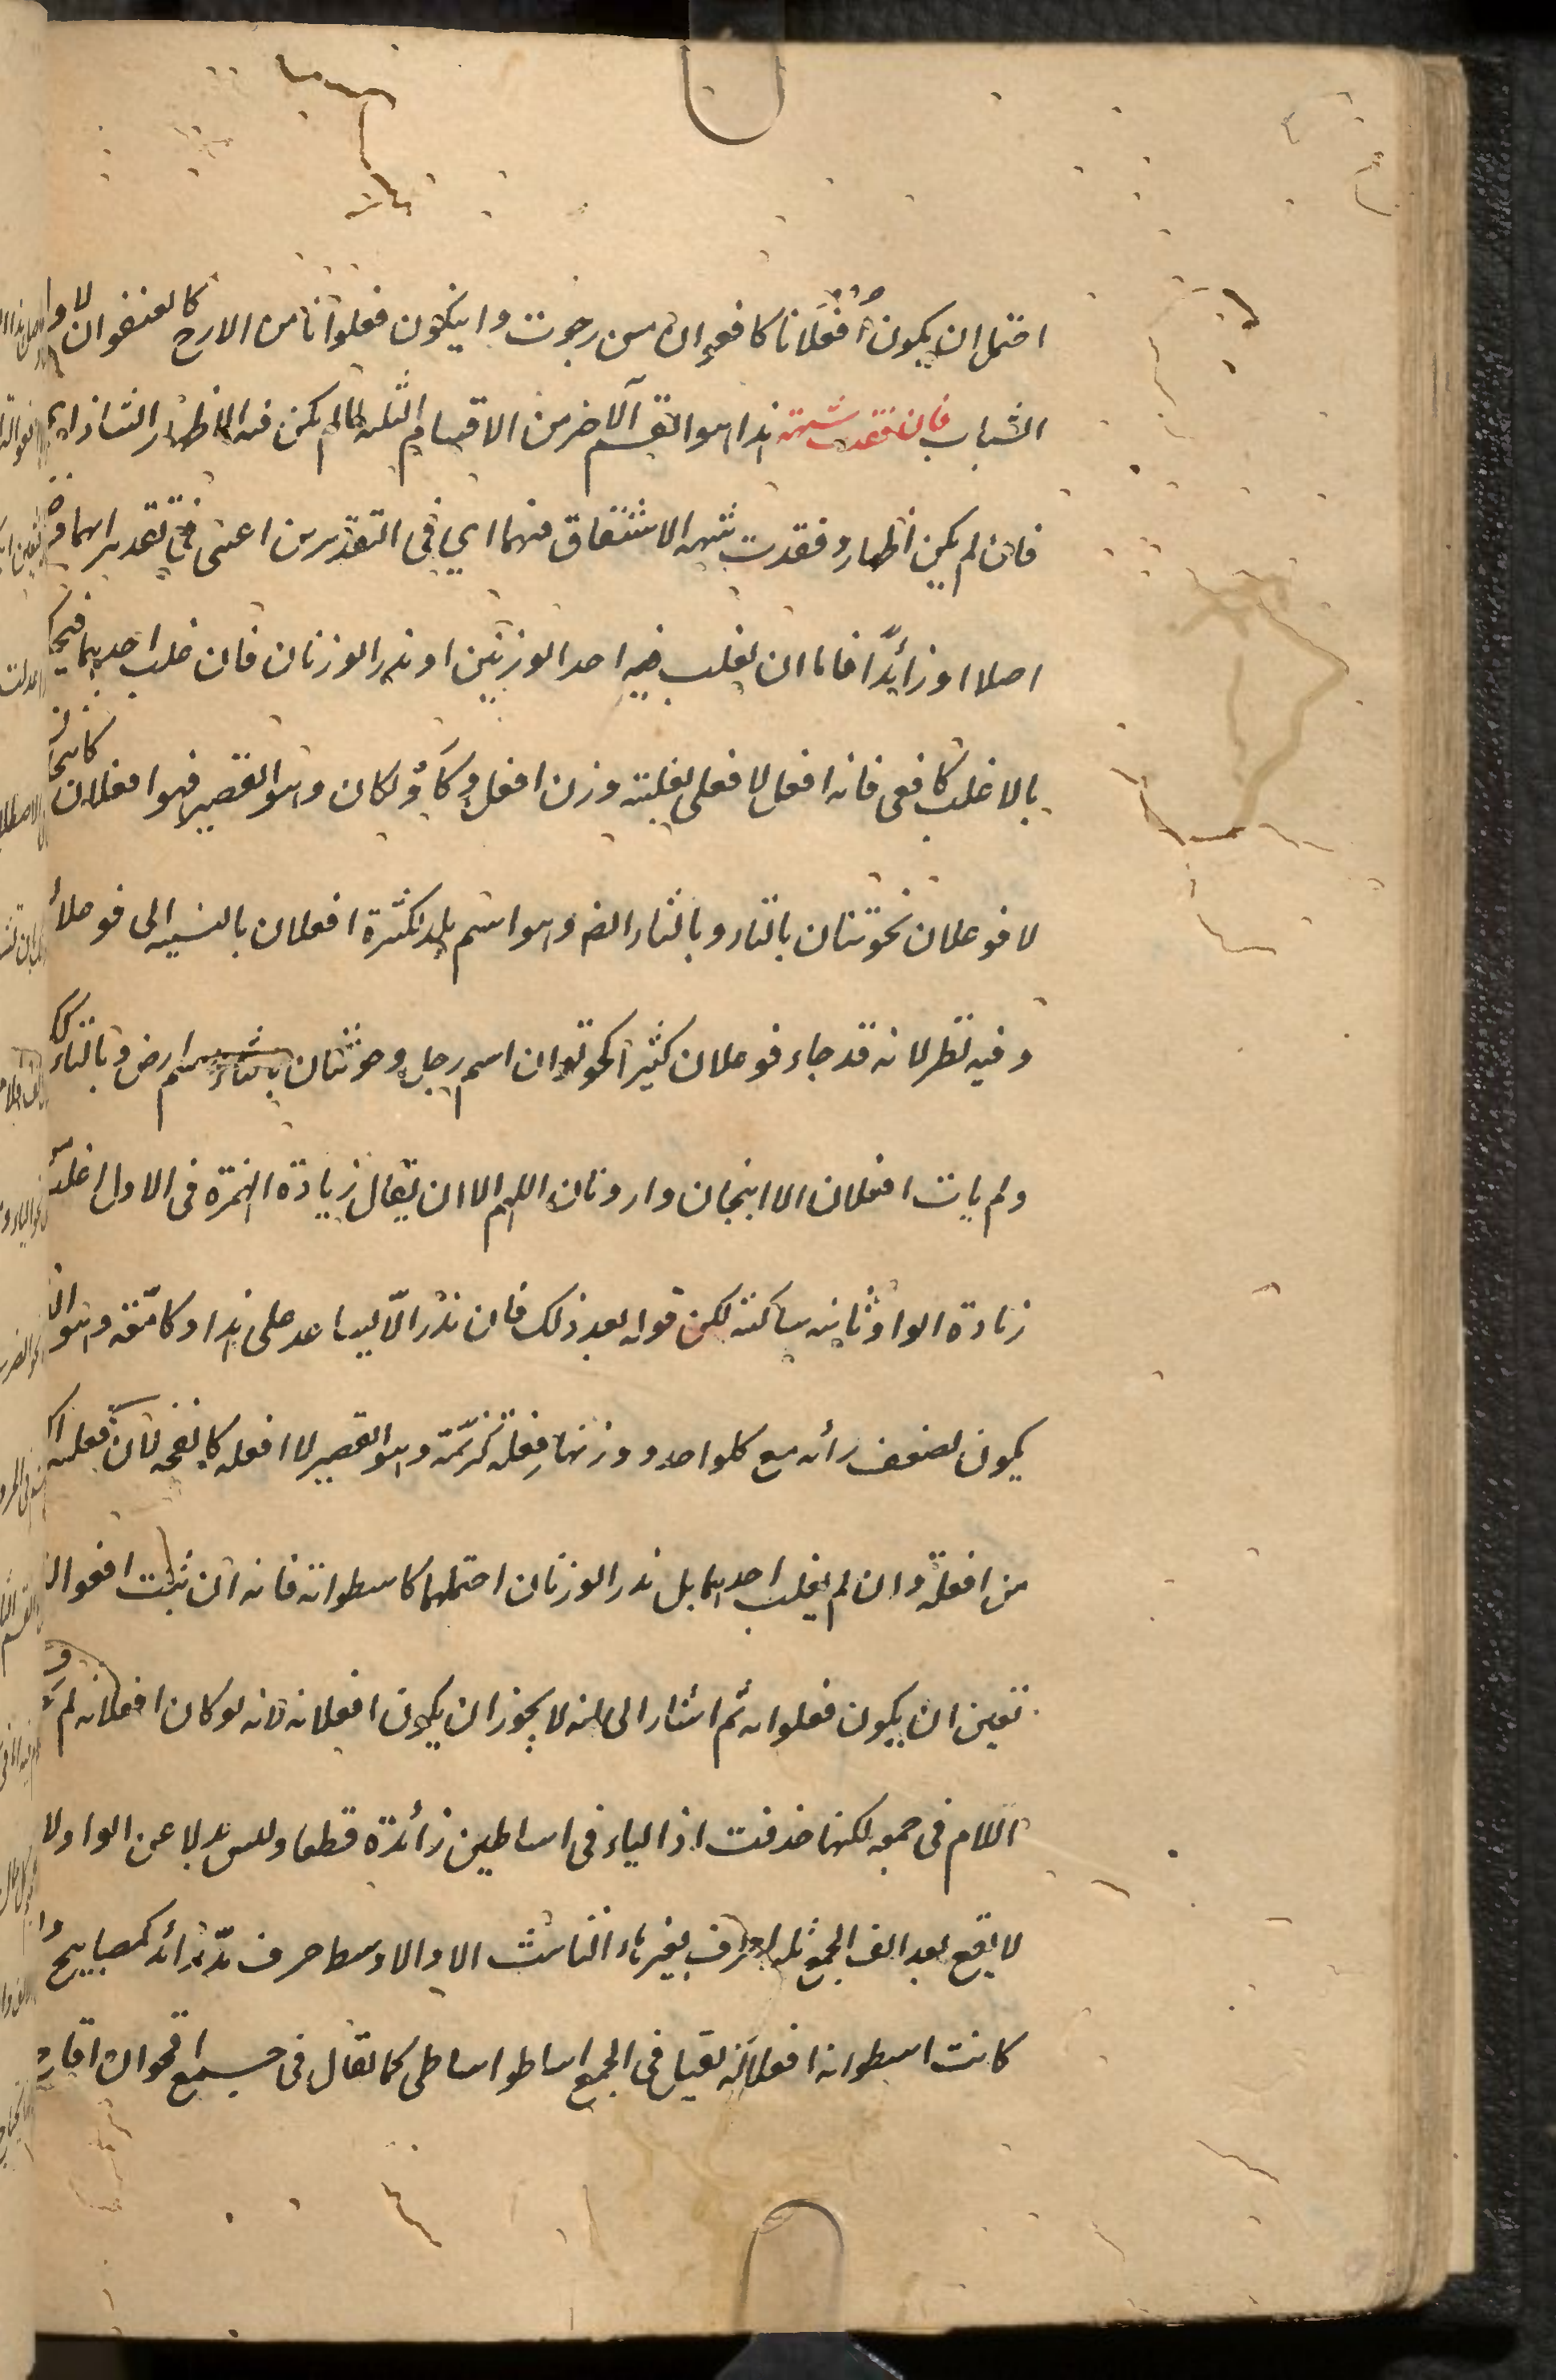 احتمل ان يكون اُفْعُلَانا كافعوان من رجوت وان يكون فعلوانا من الارج كالعنفوان لاول
الشباب فان فقدت شبهته هذا هو القسم الاخر من الاقسام الثلثه لما لم يكن فيه الاظهار الشاذ اي
فان لم يكن اظهار وفقدت شبهه الاشتقاق فيهما اي في التقديرين اعنى في تقديرها
اصلا او زائدًا فاما ان يغلب فيه احد الوزنين او ندر الوزنان فان غلب احديهما فيحكم
بالاغلب كافعى فانه افعل لا فعلى لغلبة وزن افعل و كأوتكان وهو القصير فهو افعلان كانبجان
لا فوعلان نحوتنان بالتاء وبالثاء ايضا وهو اسم بلد لكثرة افعلان بالنسبه الى فوعلان
وفيه نظر لانه قد جاء فوعلان كثيرا كحوتوان اسم رجل وحوثنان بالثاء اسم ارض وبالتاء
ولم يات افعلان الا انبجان وارونان اللهم الا ان يقال زيادة الهمزة في الاول اغلب من
زيادة الواو ثانيه ساكنة لكن قوله بعد ذلك فان ندر الا يساعد على هذا وكامّعة وهو الذي
يكون لضعف رأيه مع كل واحد ووزنها فِعّلة كدنّمة وهو القصير لا افعله كانفحه لان فعّلة اكثر
من افعلة وان لم يغلب احديهما بل ندر الوزنان احتملهما كاسطوانة فانه ان ثبت افعوالة
تعين ان يكون فعلوانه ثم اشار الى انه لا يجوز ان يكون افعلانه لانه لو كان افعلانه لم
اللام في جمعه لكنها حذفت اذ الياء في اساطين زائدة قطعا وليس بدلا عن الواو لا
لا يقع بعد الف الجمع ثلثه احرف بغير هاء التانيث الا والاوسط حرف مدّ زائد كمصابيح ولو
كانت اسطوانه افعلانه لقيل في الجمع اساط واساطى كما يقال في جمع اقحوان اقاح